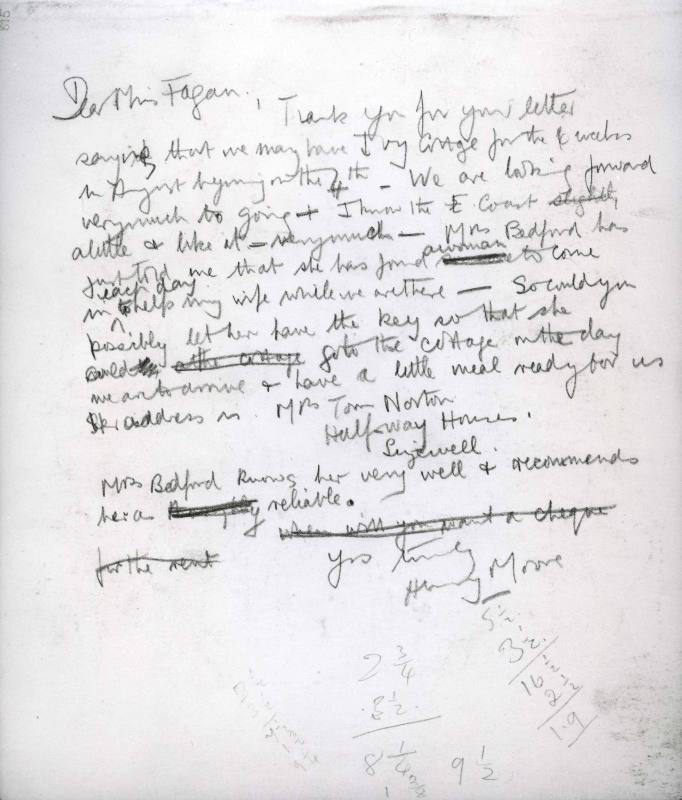 Dear Miss Fagan, Thank you for your letter
saying that we may have Ivy Cottage for the weeks
in August beginning on the 4th – We are looking forward
very much to going + I know the E. Coast slightly
a little & like it – very much – Mrs Bedford has
just told me that she has found a woman to come
in each day to help my wife while we are there – So could you
possibly let her have the key so that she
could go to the cottage on the day
we are to arrive & have a little meal ready for us
Her address is Mrs Tom Norton
Halfway Houses,
Sizewell.
Mrs Bedford knows her very well & recommends
her as reliable.
when will you want a cheque
for the rent
yrs truly
Henry Moore
5½
3½
16
2 ¾
3 ½
8 ¼
9 ½
1.9